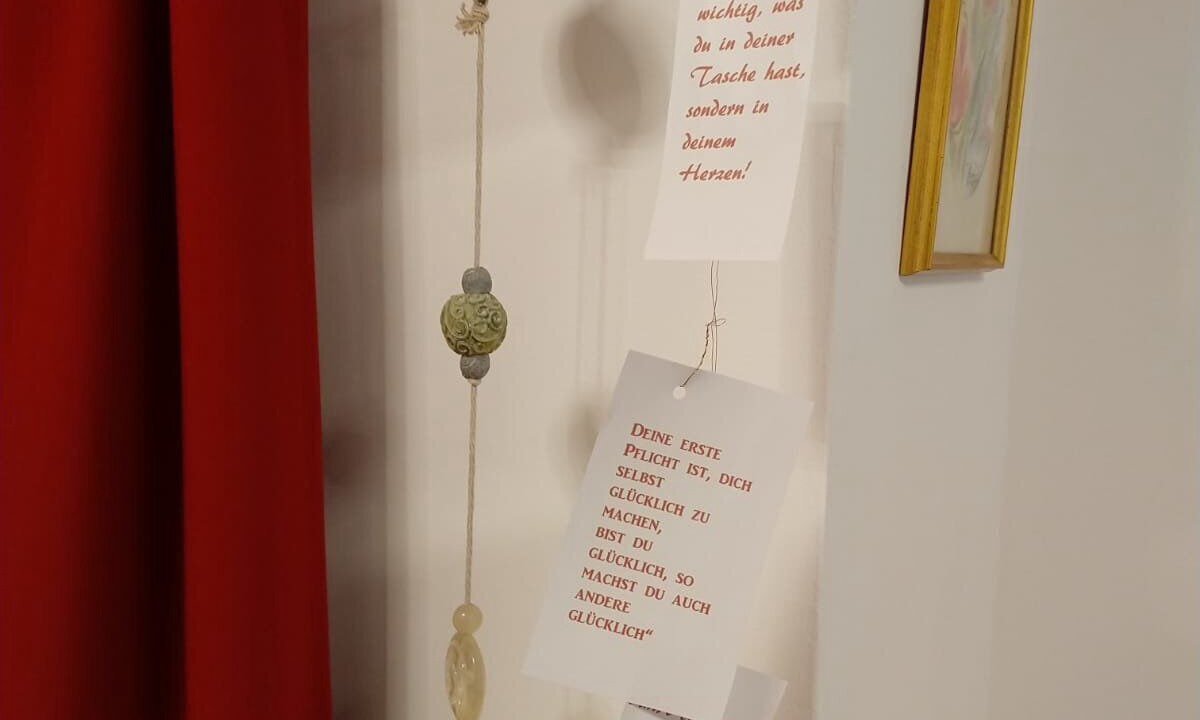 wichtig, was
du in deiner
Tasche hast,
sondern in
deinem
Herzen!
Deine erste
Pflicht ist, dich
selbst
glücklich zu
machen,
bist du
glücklich, so
machst du auch
andere
glücklich“